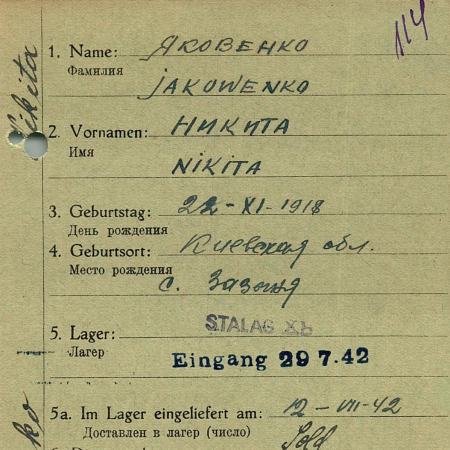 114
1. Name: ЯКОВЕНКО
Фамилия
JAKOWENKO
2. Vornamen: НИКИТА
Имя
NIKITA
3. Geburtstag: 22-XI-1918
День рождения
4. Geburtsort: Киевская обл.
Место рождения
с.
5. Lager: STALAG XB
Лагер
Eingang 29 7.42
5a. Im Lager eingeliefert am: 12-VII-42
Доставлен в лагер (число)
Sold
Nikita
ko